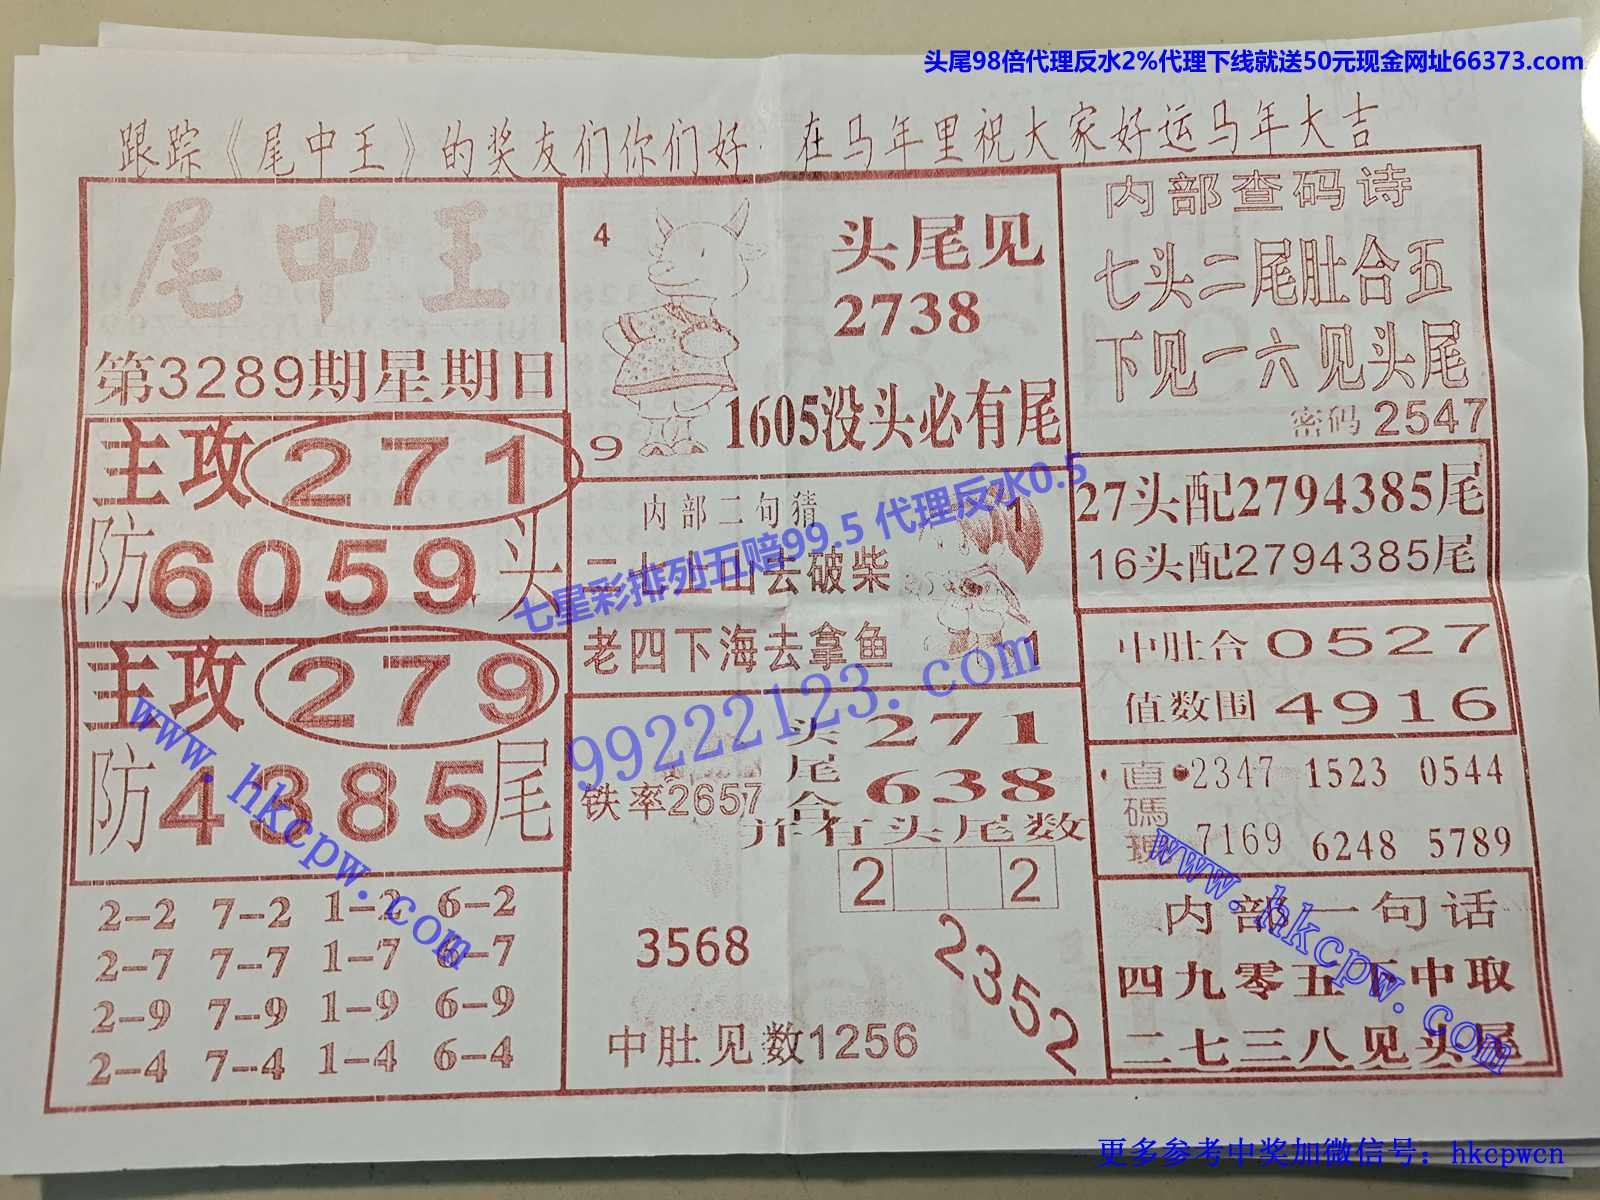 头尾98倍代理反水2%代理下线就送50元现金网址66373.com
跟踪《尾中王》的奖友们你们好 在马年里祝大家好运马年大吉
尾中王
第3289期星期日
主攻271
防6059头
主攻279
防4385尾
2-2 7-2 1-2 6-2
2-7 7-7 1-7 6-7
2-9 7-9 1-9 6-9
2-4 7-4 1-4 6-4
4
9
头尾见
2738
1605没头必有尾
内部二句猜
二七上山去破柴
老四下海去拿鱼
1
1
七星彩排列五赔99.5 代理反水0.5
99222123.com
铁率2657
头尾合
271
638
并有头尾数
2 2
3568
2352
中肚见数1256
内部查码诗
七头二尾肚合五
下见一六见头尾
密码2547
27头配2794385尾
16头配2794385尾
中肚合0527
值数围4916
直碼
2347 1523 0544
7169 6248 5789
内部一句话
四九零五下中取
二七三八见头尾
www.hkcpw.com
www.hkcpw.com
更多参考中奖加微信号：hkcpwcn